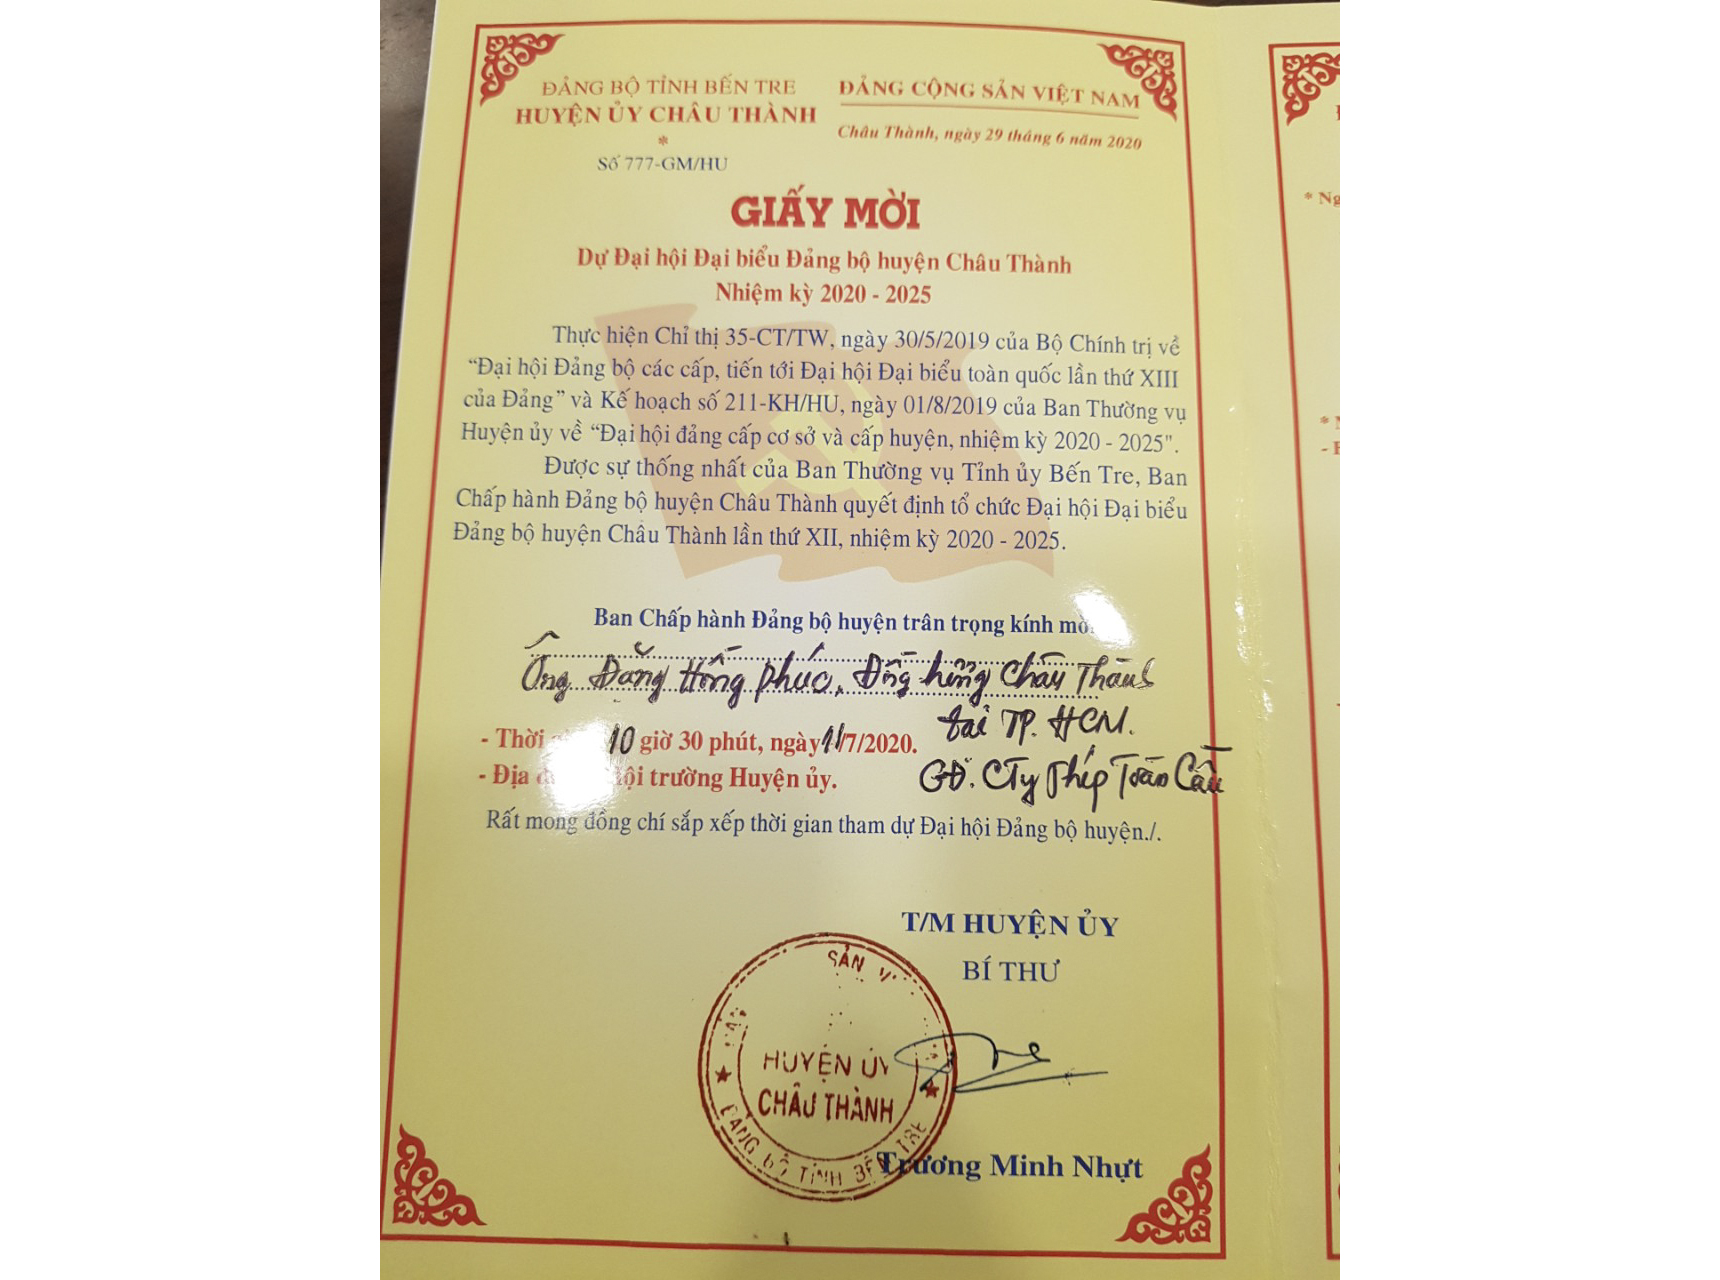 ĐẢNG BỘ TỈNH BẾN TRE
HUYỆN ỦY CHÂU THÀNH
*
Số 777-GM/HU
ĐẢNG CỘNG SẢN VIỆT NAM
Châu Thành, ngày 29 tháng 6 năm 2020
GIẤY MỜI
Dự Đại hội Đại biểu Đảng bộ huyện Châu Thành
Nhiệm kỳ 2020 - 2025
Thực hiện Chỉ thị 35-CT/TW, ngày 30/5/2019 của Bộ Chính trị về
“Đại hội Đảng bộ các cấp, tiến tới Đại hội Đại biểu toàn quốc lần thứ XIII
của Đảng” và Kế hoạch số 211-KH/HU, ngày 01/8/2019 của Ban Thường vụ
Huyện ủy về “Đại hội đảng cấp cơ sở và cấp huyện, nhiệm kỳ 2020 - 2025".
Được sự thống nhất của Ban Thường vụ Tỉnh ủy Bến Tre, Ban
Chấp hành Đảng bộ huyện Châu Thành quyết định tổ chức Đại hội Đại biểu
Đảng bộ huyện Châu Thành lần thứ XII, nhiệm kỳ 2020 - 2025.
Ban Chấp hành Đảng bộ huyện trân trọng kính mời
Ông Đặng Hồng Phúc, Đồng hương Châu Thành
tại TP. HCM.
GĐ. CTy Thép Toàn Cầu
- Thời 10 giờ 30 phút, ngày 11/7/2020.
- Địa trường Huyện ủy.
Rất mong đồng chí sắp xếp thời gian tham dự Đại hội Đảng bộ huyện./.
T/M HUYỆN ỦY
BÍ THƯ
SẢN
HUYỆN ỦY
CHÂU THÀNH
ĐẢNG BỘ TỈNH BẾN TRE
Trương Minh Nhựt
* Ng